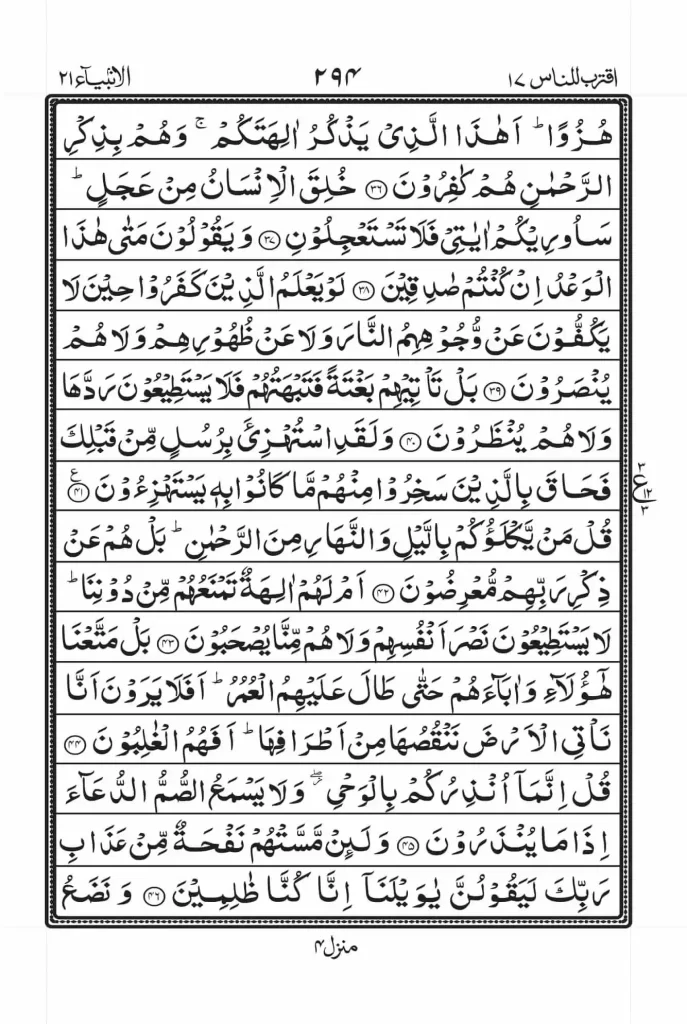 اقترب للناس ١٧ ٢٩٤ الانبیآء ٢١
هُزُوًا ؕ اَهٰذَا الَّذِیْ یَذْكُرُ اٰلِهَتَكُمْ ۚ وَهُمْ بِذِكْرِ
الرَّحْمٰنِ هُمْ كٰفِرُوْنَ ۝٣٦ خُلِقَ الْاِنْسَانُ مِنْ عَجَلٍ ؕ
سَاُورِیْكُمْ اٰیٰتِیْ فَلَا تَسْتَعْجِلُوْنِ ۝٣٧ وَیَقُوْلُوْنَ مَتٰی هٰذَا
الْوَعْدُ اِنْ كُنْتُمْ صٰدِقِیْنَ ۝٣٨ لَوْ یَعْلَمُ الَّذِیْنَ كَفَرُوْا حِیْنَ لَا
یَكُفُّوْنَ عَنْ وُّجُوْهِهِمُ النَّارَ وَلَا عَنْ ظُهُوْرِهِمْ وَلَا هُمْ
یُنْصَرُوْنَ ۝٣٩ بَلْ تَاْتِیْهِمْ بَغْتَةً فَتَبْهَتُهُمْ فَلَا یَسْتَطِیْعُوْنَ رَدَّهَا
وَلَا هُمْ یُنْظَرُوْنَ ۝٤٠ وَلَقَدِ اسْتُهْزِئَ بِرُسُلٍ مِّنْ قَبْلِكَ
فَحَاقَ بِالَّذِیْنَ سَخِرُوْا مِنْهُمْ مَّا كَانُوْا بِهٖ یَسْتَهْزِءُوْنَ ۝٤١ ع
٣ ع ١٢ ٣
قُلْ مَنْ یَّكْلَؤُكُمْ بِالَّیْلِ وَالنَّهَارِ مِنَ الرَّحْمٰنِ ؕ بَلْ هُمْ عَنْ
ذِكْرِ رَبِّهِمْ مُّعْرِضُوْنَ ۝٤٢ اَمْ لَهُمْ اٰلِهَةٌ تَمْنَعُهُمْ مِّنْ دُوْنِنَا ؕ
لَا یَسْتَطِیْعُوْنَ نَصْرَ اَنْفُسِهِمْ وَلَا هُمْ مِّنَّا یُصْحَبُوْنَ ۝٤٣ بَلْ مَتَّعْنَا
هٰۤؤُلَآءِ وَاٰبَآءَهُمْ حَتّٰی طَالَ عَلَیْهِمُ الْعُمُرُ ؕ اَفَلَا یَرَوْنَ اَنَّا
نَاْتِی الْاَرْضَ نَنْقُصُهَا مِنْ اَطْرَافِهَا ؕ اَفَهُمُ الْغٰلِبُوْنَ ۝٤٤
قُلْ اِنَّمَاۤ اُنْذِرُكُمْ بِالْوَحْیِ ۖؗ وَلَا یَسْمَعُ الصُّمُّ الدُّعَآءَ
اِذَا مَا یُنْذَرُوْنَ ۝٤٥ وَلَىِٕنْ مَّسَّتْهُمْ نَفْحَةٌ مِّنْ عَذَابِ
رَبِّكَ لَیَقُوْلُنَّ یٰوَیْلَنَاۤ اِنَّا كُنَّا ظٰلِمِیْنَ ۝٤٦ وَنَضَعُ
منزل ٤